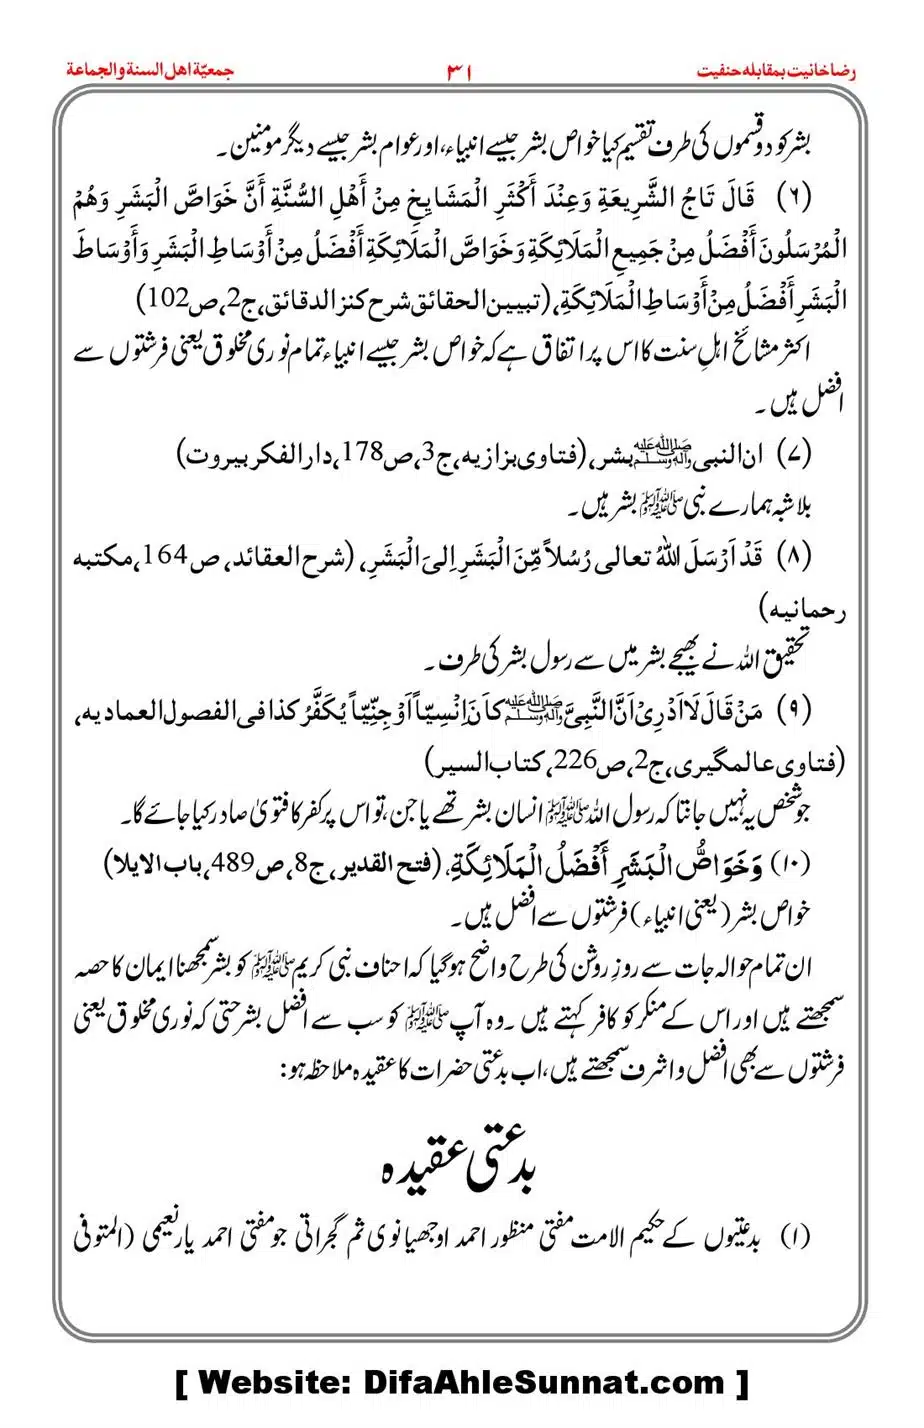 رضاخانیت بمقابلہ حنفیت
۳۱
جمعیّة اهل السنة والجماعة
بشر کو دو قسموں کی طرف تقسیم کیا خواص بشر جیسے انبیاء، اور عوام بشر جیسے دیگر مومنین۔
(۶) قَالَ تَاجُ الشَّرِيعَةِ وَعِنْدَ أَكْثَرِ الْمَشَايِخِ مِنْ أَهْلِ السُّنَّةِ أَنَّ خَوَاصَّ الْبَشَرِ وَهُمْ
الْمُرْسَلُونَ أَفْضَلُ مِنْ جَمِيعِ الْمَلَائِكَةِ وَخَوَاصَّ الْمَلَائِكَةِ أَفْضَلُ مِنْ أَوْسَاطِ الْبَشَرِ وَأَوْسَاطَ
الْبَشَرِ أَفْضَلُ مِنْ أَوْسَاطِ الْمَلَائِكَةِ، (تبیین الحقائق شرح کنز الدقائق، ج2، ص102)
اکثر مشائخ اہلِ سنت کا اس پر اتفاق ہے کہ خواص بشر جیسے انبیاء تمام نوری مخلوق یعنی فرشتوں سے
افضل ہیں۔
(۷) ان النبی ﷺ بشر، (فتاوی بزازیه، ج3، ص178، دار الفکر بیروت)
بلا شبہ ہمارے نبی ﷺ بشر ہیں۔
(۸) قَدْ اَرْسَلَ اللّٰهُ تعالی رُسُلاً مِّنَ الْبَشَرِ اِلیَ الْبَشَرِ، (شرح العقائد، ص164، مکتبه
رحمانیه)
تحقیق اللہ نے بھیجے بشر میں سے رسول بشر کی طرف۔
(۹) مَنْ قَالَ لَا اَدْرِیْ اَنَّ النَّبِیَّ ﷺ کاَنَ اِنْسِیّاً اَوْ جِنِّیّاً یُکَفَّرُ کذا فی الفصول العمادیه،
(فتاوی عالمگیری، ج2، ص226، کتاب السیر)
جو شخص یہ نہیں جانتا کہ رسول اللہ ﷺ انسان بشر تھے یا جن، تو اس پر کفر کا فتویٰ صادر کیا جائے گا۔
(۱۰) وَخَوَاصُّ الْبَشَرِ أَفْضَلُ الْمَلَائِكَةِ، (فتح القدیر، ج8، ص489، باب الایلا)
خواص بشر (یعنی انبیاء) فرشتوں سے افضل ہیں۔
ان تمام حوالہ جات سے روزِ روشن کی طرح واضح ہو گیا کہ احناف نبی کریم ﷺ کو بشر سمجھنا ایمان کا حصہ
سمجھتے ہیں اور اس کے منکر کو کافر کہتے ہیں۔ وہ آپ ﷺ کو سب سے افضل بشر حتی کہ نوری مخلوق یعنی
فرشتوں سے بھی افضل واشرف سمجھتے ہیں، اب بدعتی حضرات کا عقیدہ ملاحظہ ہو:
بدعتی عقیدہ
(۱) بدعتیوں کے حکیم الامت مفتی منظور احمد اوجھیانوی ثم گجراتی جو مفتی احمد یار نعیمی (المتوفی
[ Website: DifaAhleSunnat.com ]